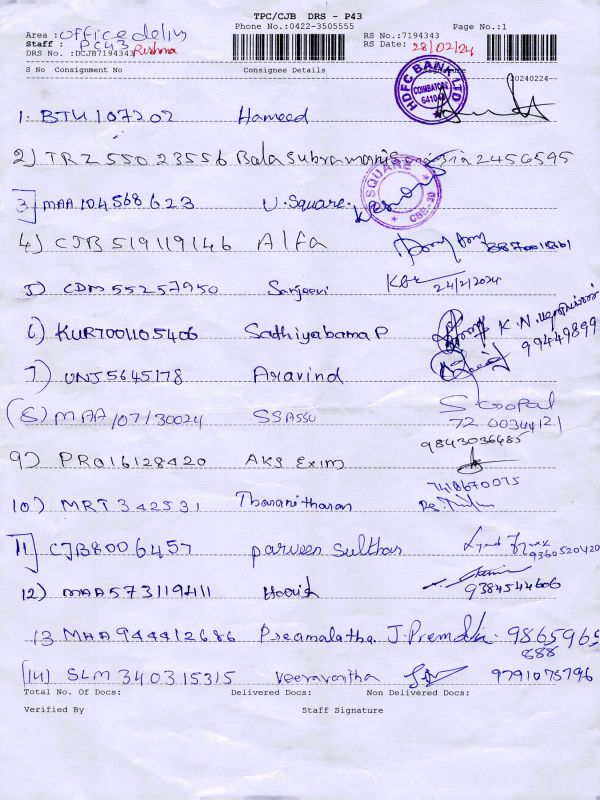 TPC/CJB DRS - P43
Phone No.:0422-3505555 Page No.:1
Area : office deliy
RS No.:7194343
Staff : PC43 Reshma
RS Date: 28/02/24
DRS No. :DCJB7194343
S No Consignment No Consignee Details
20240224
HDFC BANK LTD COIMBATORE
1. BTU 107202 Hameed
2) TRZ 550 23556 Balasubramanis 2456595
SQUARE CBE-20
3] MAA 104568623 U.Square.
4) CJB 519119146 Alfa
5) CDM 55257950 Sanjeevi KBE 24/2/2024
6) KUR7001105406 Sathiyabama P K.N. 99449899
7) UNJ5645178 Aravind
(8) MAA/07/30024 SSASSU S Gopal
72 00344121
9843036685
9) PRO16128420 AKS Exim
7418670075
10) MRT 342531 Tharanitharan
11] CJB8006457 parveen sulthan
9360520420
12) MAA573119411 Harish
9384544606
13 MAA944412686 Preamalatha J.Prem 9865965
888
(14) SLM 340315315 Veeravantha 9791075796
Total No. Of Docs: Delivered Docs: Non Delivered Docs:
Verified By Staff Signature